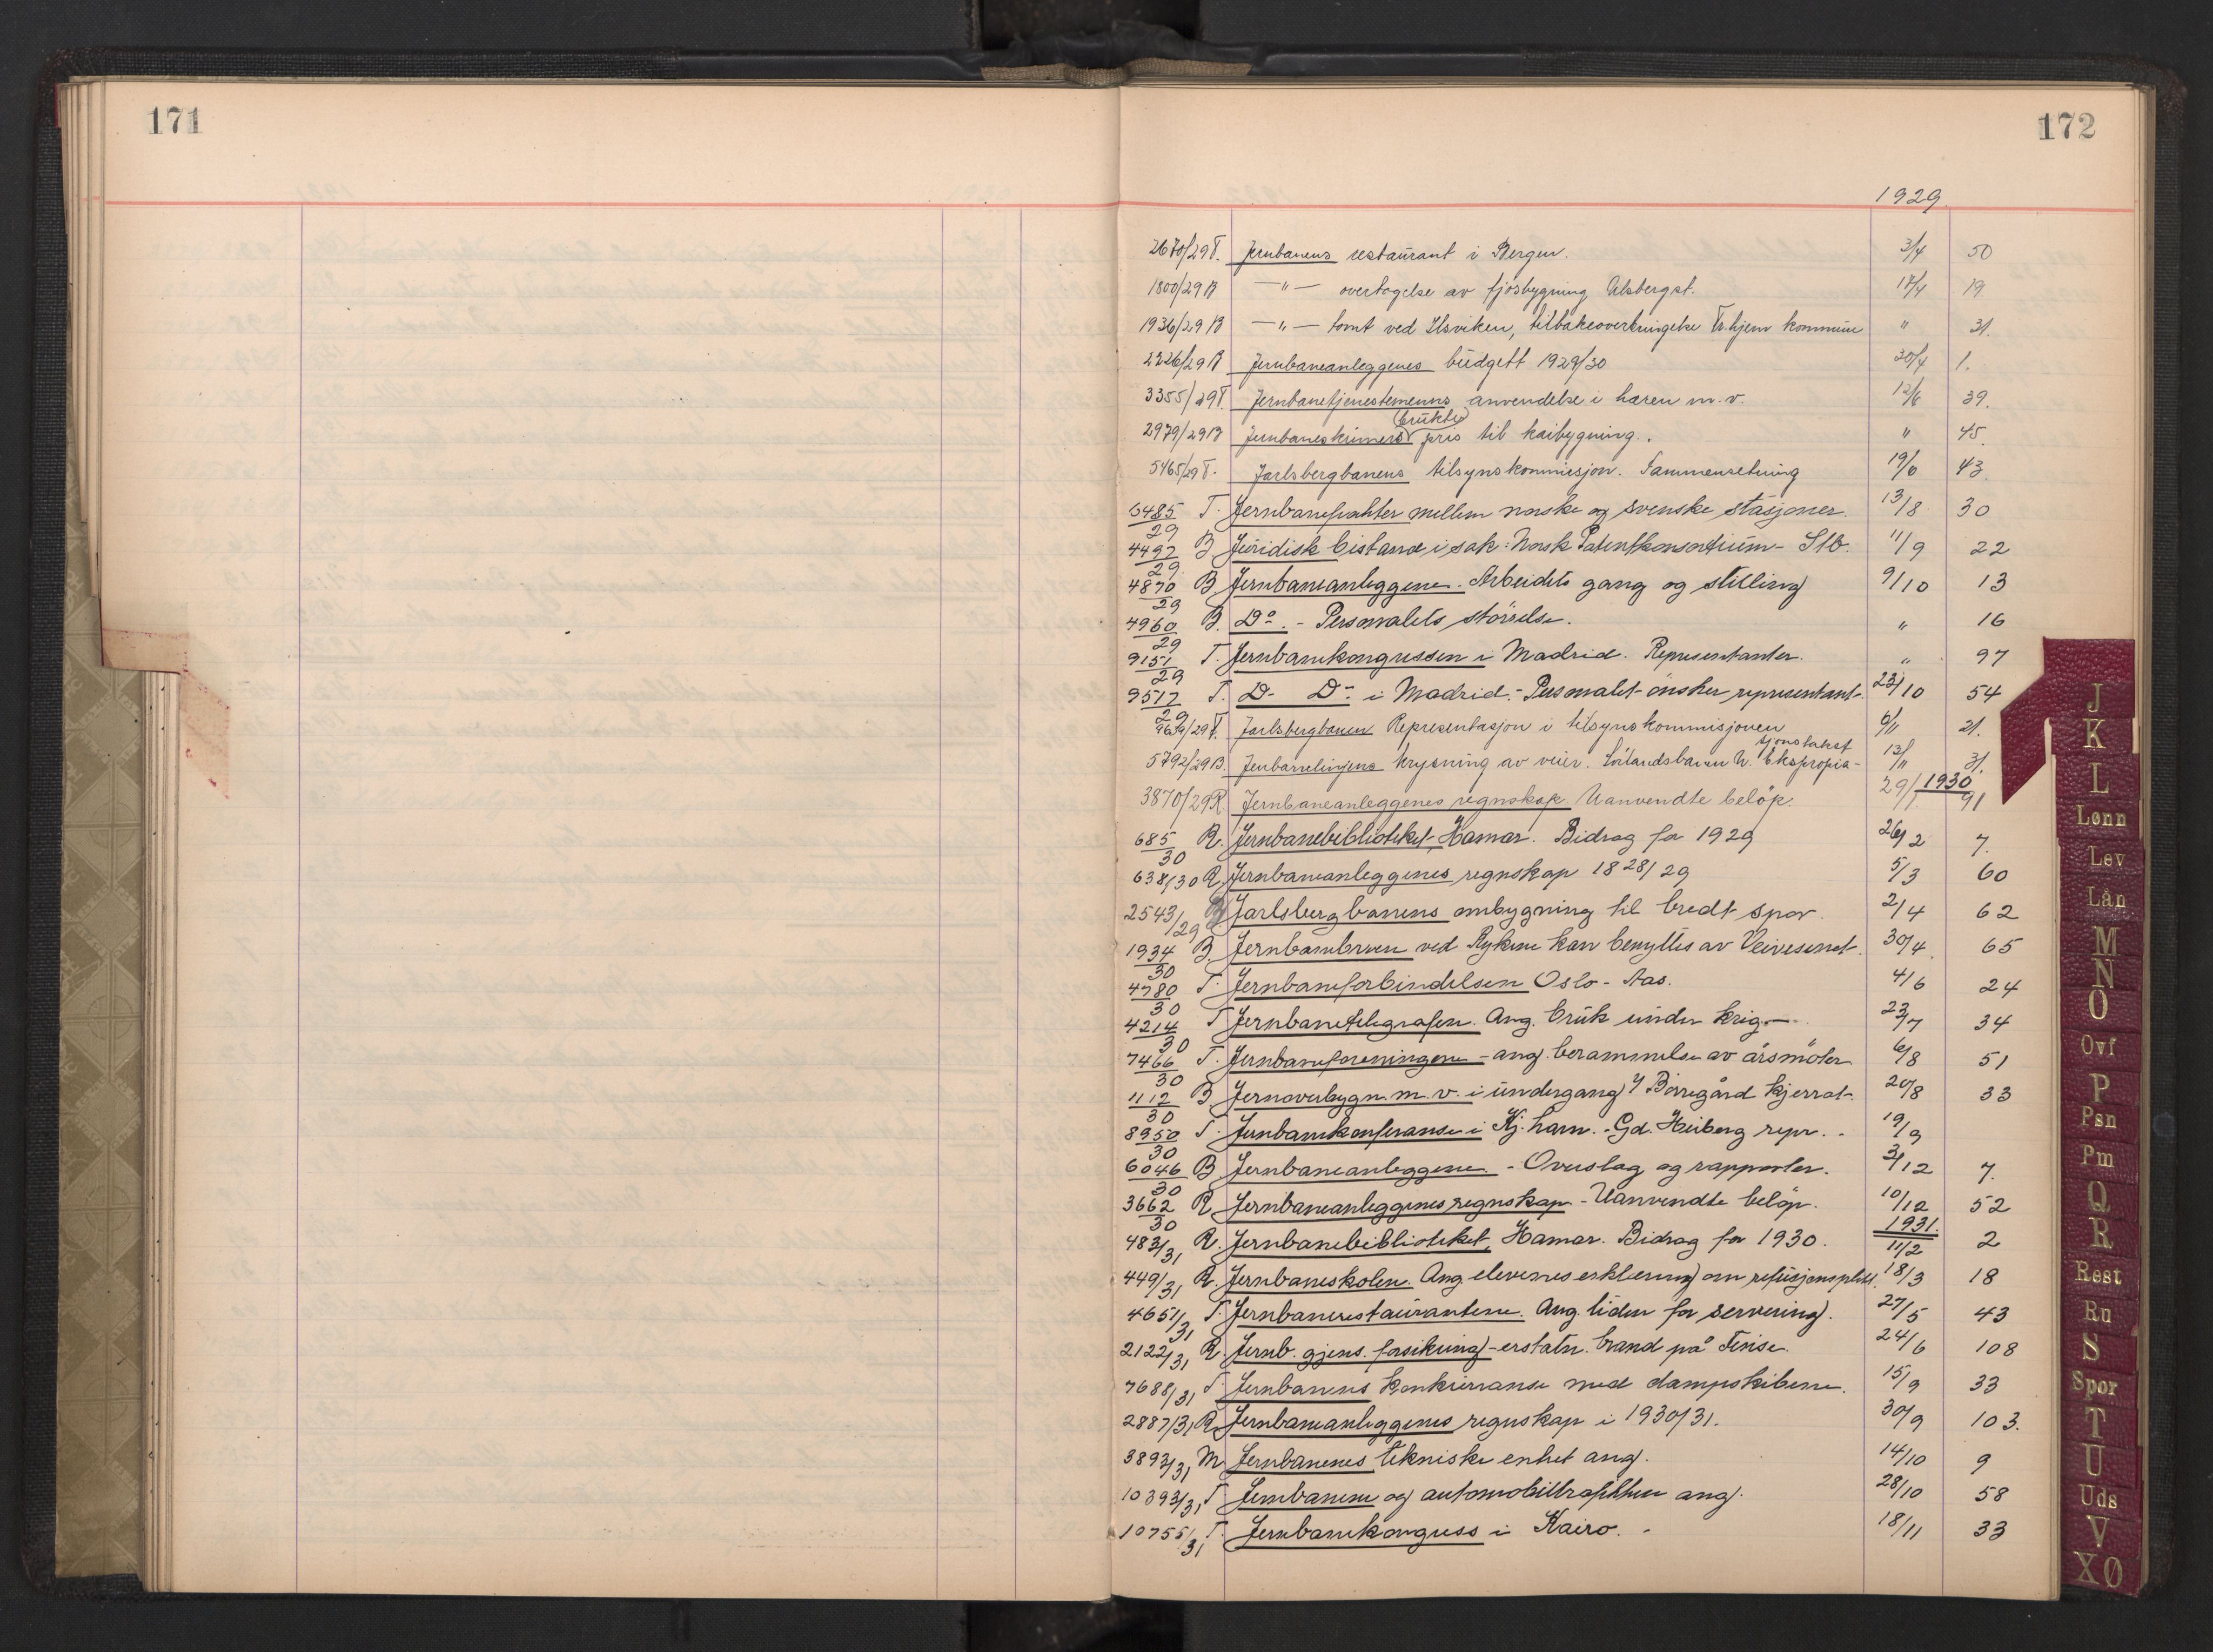 171
172
1929.
2670/29 T. Jernbanens restaurant i Bergen. 3/4 50
1800/29 B —"— overtagelse av fjøsbygning Alsbergst. 17/4 19
1936/29 B —"— tomt ved Ilsviken, Tr.hjem kommune " 31.
2226/29 B Jernbaneanleggenes budgett 1929/30 30/4 1.
3355/29 T. Jernbanetjenestemenns anvendelse i hæren m.v. 12/6 39.
2979/29 B Jernbaneskinners (brukte) pris til kaibygning. " 45.
5465/29 T. Jarlsbergbanens tilsynskommisjon. Sammensetning 19/6 43
6485/29 T. Jernbanefrakter mellem norske og svenske stasjoner. 13/8 30
4497/29 B Juridisk bistand i sak: Norsk Patentkonsortium - Stb. 11/9 22
4870/29 B Jernbaneanleggene. Arbeidets gang og stilling 9/10 13
4960/29 B. Do. - Personalets størrelse. " 16
9151/29 T. Jernbanekongressen i Madrid. Representanter. " 97
9517/29 T. D- Do i Madrid. - Personalet ønsker representant. 23/10 54
9634/29 T. Jarlsbergbanen Representasjon i tilsynskommisjonen 6/11 21.
5792/29 B. Jernbanelinjens krysning av veier. Sørlandsbanen V. Ekspropia-sjonstakst 13/11 31.
1930
3870/29 R. Jernbaneanleggenes regnskap Uanvendte beløp. 29/1 91
685/30 R. Jernbanebiblioteket Hamar. Bidrag for 1929 26/2 7.
638/30 R Jernbaneanleggenes regnskap 1828/29 5/3 60
2543/29 B Jarlsbergbanens ombygning til bredt spor. 2/4 62
1934/30 B. Jernbanebroen ved Rykene kan benyttes av Veivesenet. 30/4 65
4780/30 T. Jernbaneforbindelsen Oslo - Aas. 4/6 24
4214/30 T Jernbanetelegrafen. Ang. bruk under krig. 23/7 34
7466/30 T. Jernbaneforeningene - ang. berammelse av årsmøter 6/8 51
1112/30 B Jernoverbygn. m.v. i undergang v/ Borregård kjerrat. 20/8 33
8950/30 T. Jernbanekonferanse i Kj.havn. - Gd. Heiberg repr. 19/9
6046/30 B Jernbaneanleggene - Overslag og rapporter. 3/12 7.
3662/30 R Jernbaneanleggenes regnskap - Uanvendte beløp. 10/12 52
1931.
483/31 R. Jernbanebiblioteket, Hamar. Bidrag for 1930. 11/2 2
449/31 R. Jernbaneskolen. Ang. elevenes erklæring om refusjonsplikt. 18/3 18
4651/31 T. Jernbanerestaurantene. Ang. tiden for servering. 27/5 43
2122/31 R. Jernb. gjens. forsikring - erstatn. brand på Finse. 24/6 108
7688/31 T. Jernbanens konkurranse med dampskibene. 15/9 33
2887/31 R Jernbaneanleggenes regnskap i 1930/31. 30/9 103.
3893/31 M Jernbanenes tekniske enhet ang. 14/10 9
10393/31 T Jernbanene og automobiltrafikken ang. 28/10 58
10755/31 T. Jernbanekongress i Kairo. 18/11 33
J
K
L
Lønn
Lev
Lån
M
N
O
Ovf
P
Psn
Pm
Q
R
Rest
Ru
S
Spor
T
U
Uds
V
XØ